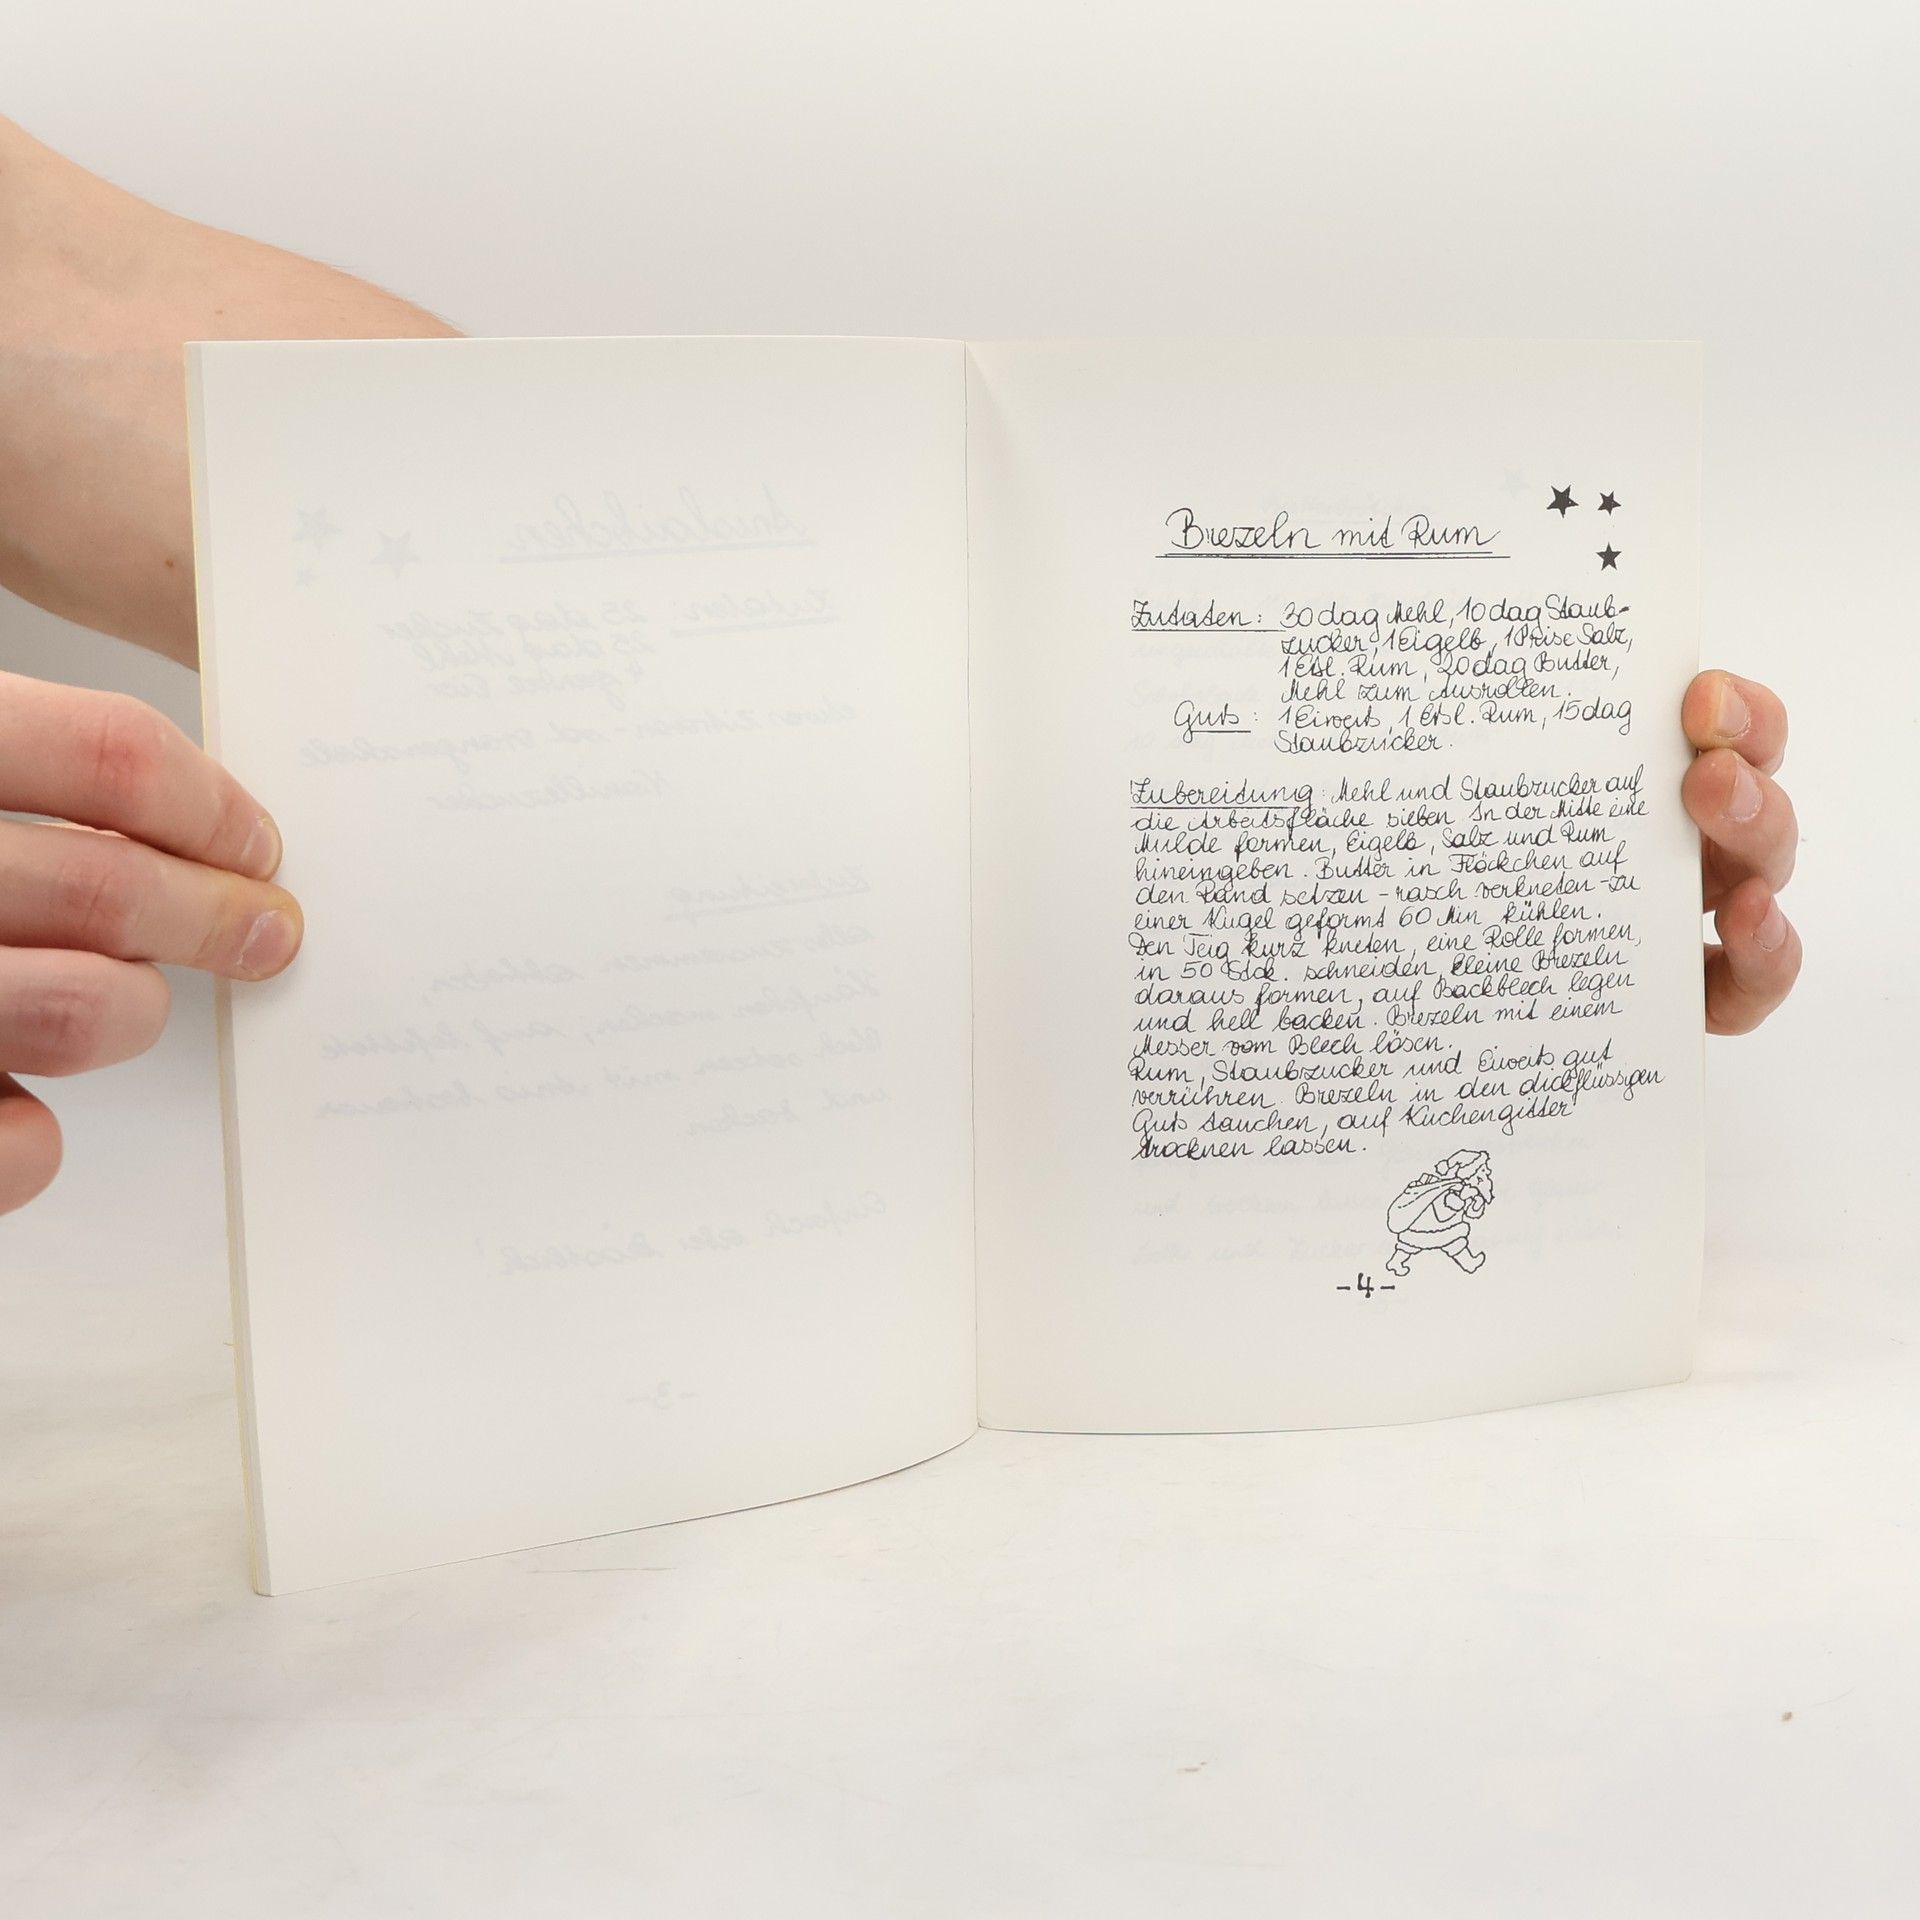 Brezeln mit Rum
Zutaten: 30 dag Mehl, 10 dag Staub-
zucker, 1 Eigelb, 1 Prise Salz,
1 Essl. Rum, 20 dag Butter,
Mehl zum Ausrollen.
Guß: 1 Eiweiß, 1 Essl. Rum, 15 dag
Staubzucker.
Zubereitung: Mehl und Staubzucker auf
die Arbeitsfläche sieben. In der Mitte eine
Mulde formen, Eigelb, Salz und Rum
hineingeben. Butter in Flöckchen auf
den Rand setzen - rasch verkneten - zu
einer Kugel geformt 60 Min kühlen.
Den Teig kurz kneten, eine Rolle formen,
in 50 Stck. schneiden, kleine Brezeln
daraus formen, auf Backblech legen
und hell backen. Brezeln mit einem
Messer vom Blech lösen.
Rum, Staubzucker und Eiweiß gut
verrühren. Brezeln in den dickflüssigen
Guß tauchen, auf Kuchengitter
trocknen lassen.
-4-